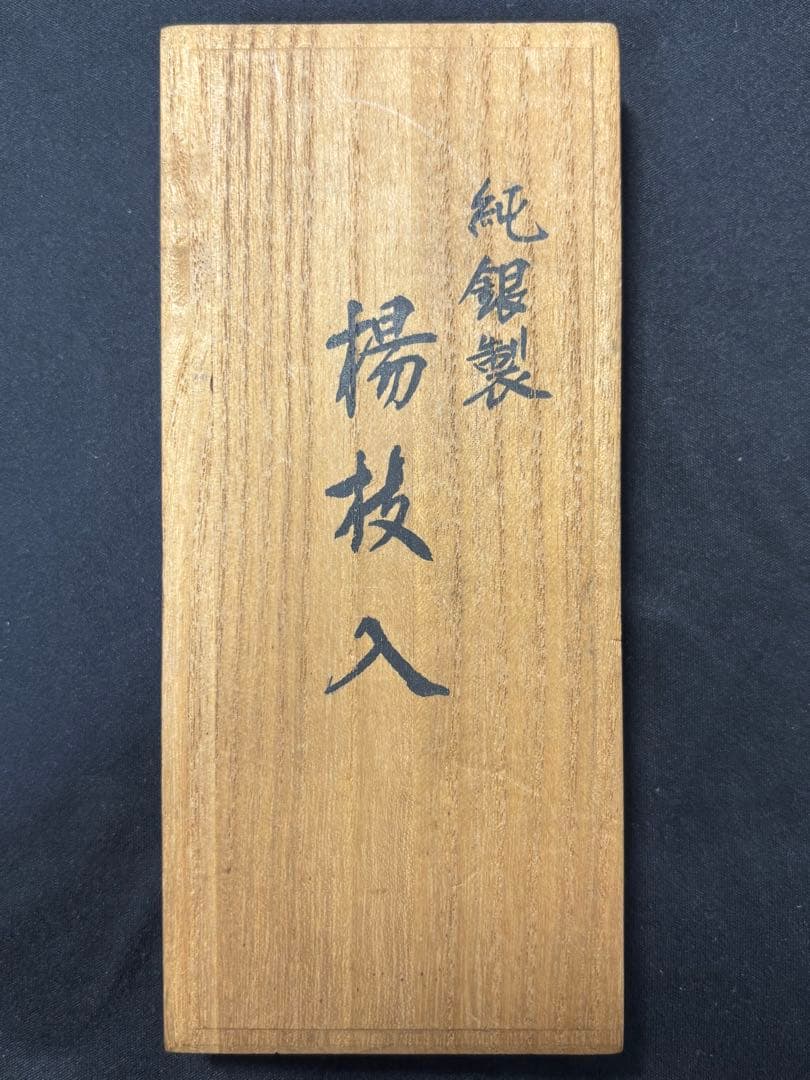 純銀製
楊枝入